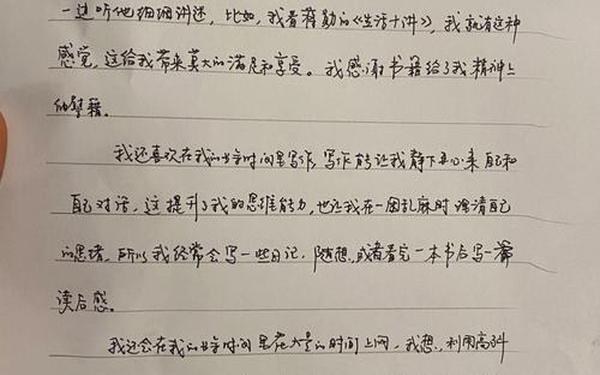 一边听他细细讲述，比如，我看蒋勋的《生活十讲》，我就有这种
感觉，这给我带来莫大的满足和享受。我感谢书籍给了我精神上
的慰籍。
我还喜欢在我的业余时间里写作，写作能让我静下心来自己和
自己对话，这提升了我的思维能力，也让我在一团乱麻时理清自己
的思绪，所以我经常会写一些日记、随想，或者看完一本书后写一篇
读后感。
我还会在我的业余时间里花大量的时间上网，我想，利用高科